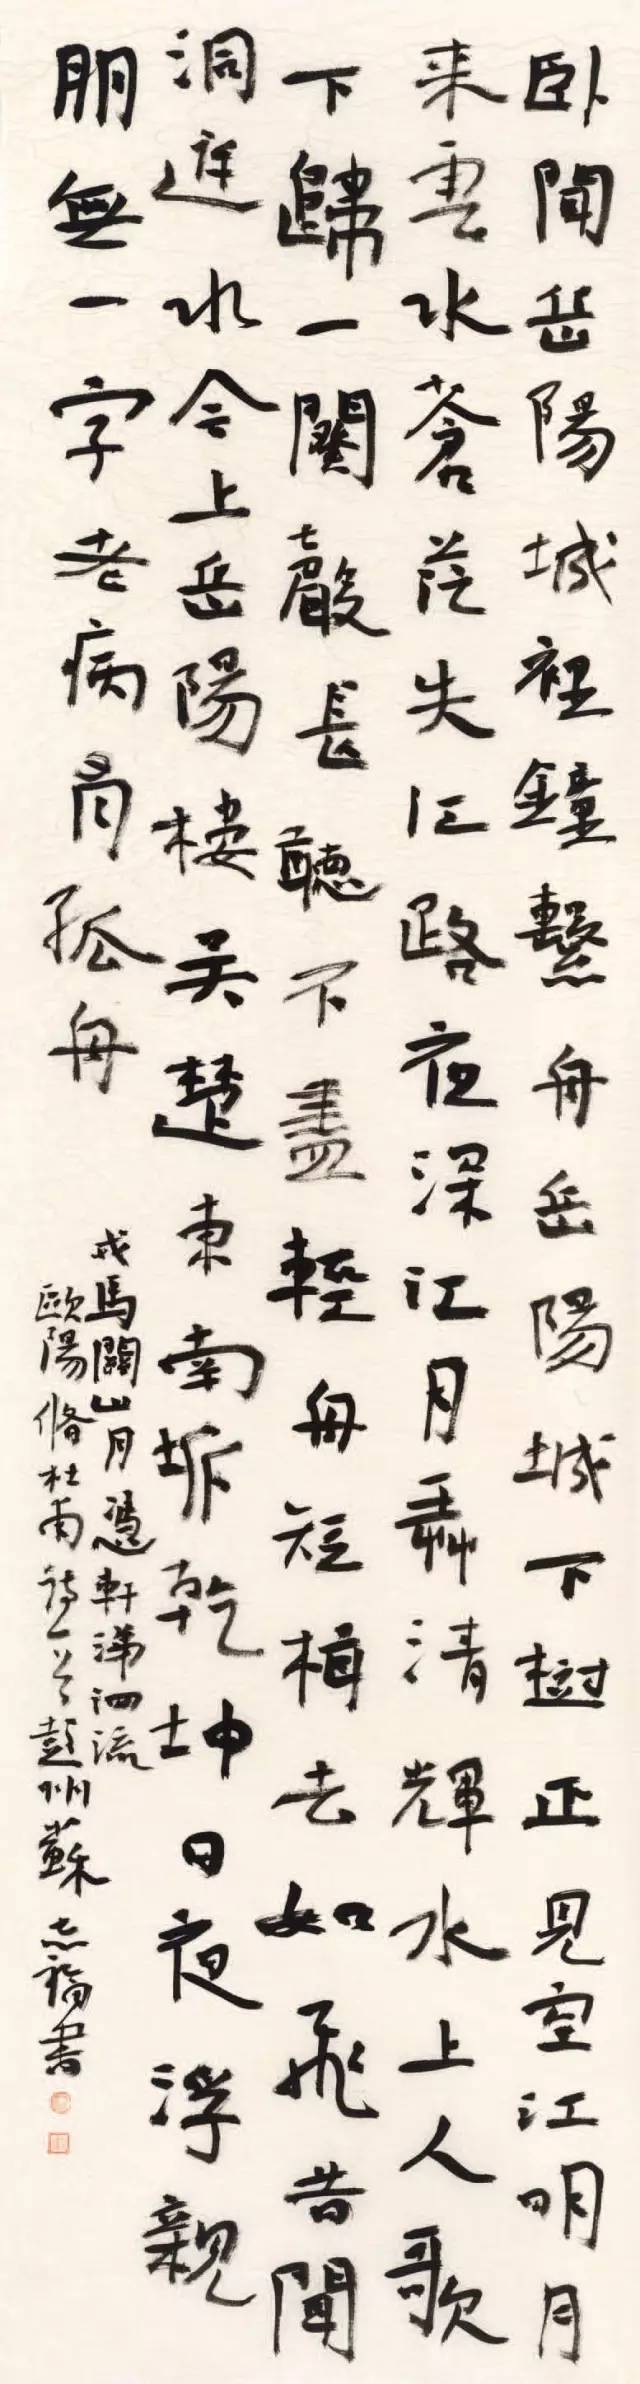 卧聞岳陽城裡鐘繫舟岳陽城下樹正見空江明月
来雲水蒼茫失江路夜深江月弄清輝水上人歌
下歸一闋聲長聽不盡輕舟短楫去如飛昔聞
洞庭水今上岳陽樓吴楚東南坼乾坤日夜浮親
朋無一字老病有孤舟
戎馬關山月憑軒涕泗流
歐陽脩杜甫詩二首彭州蘇志福書